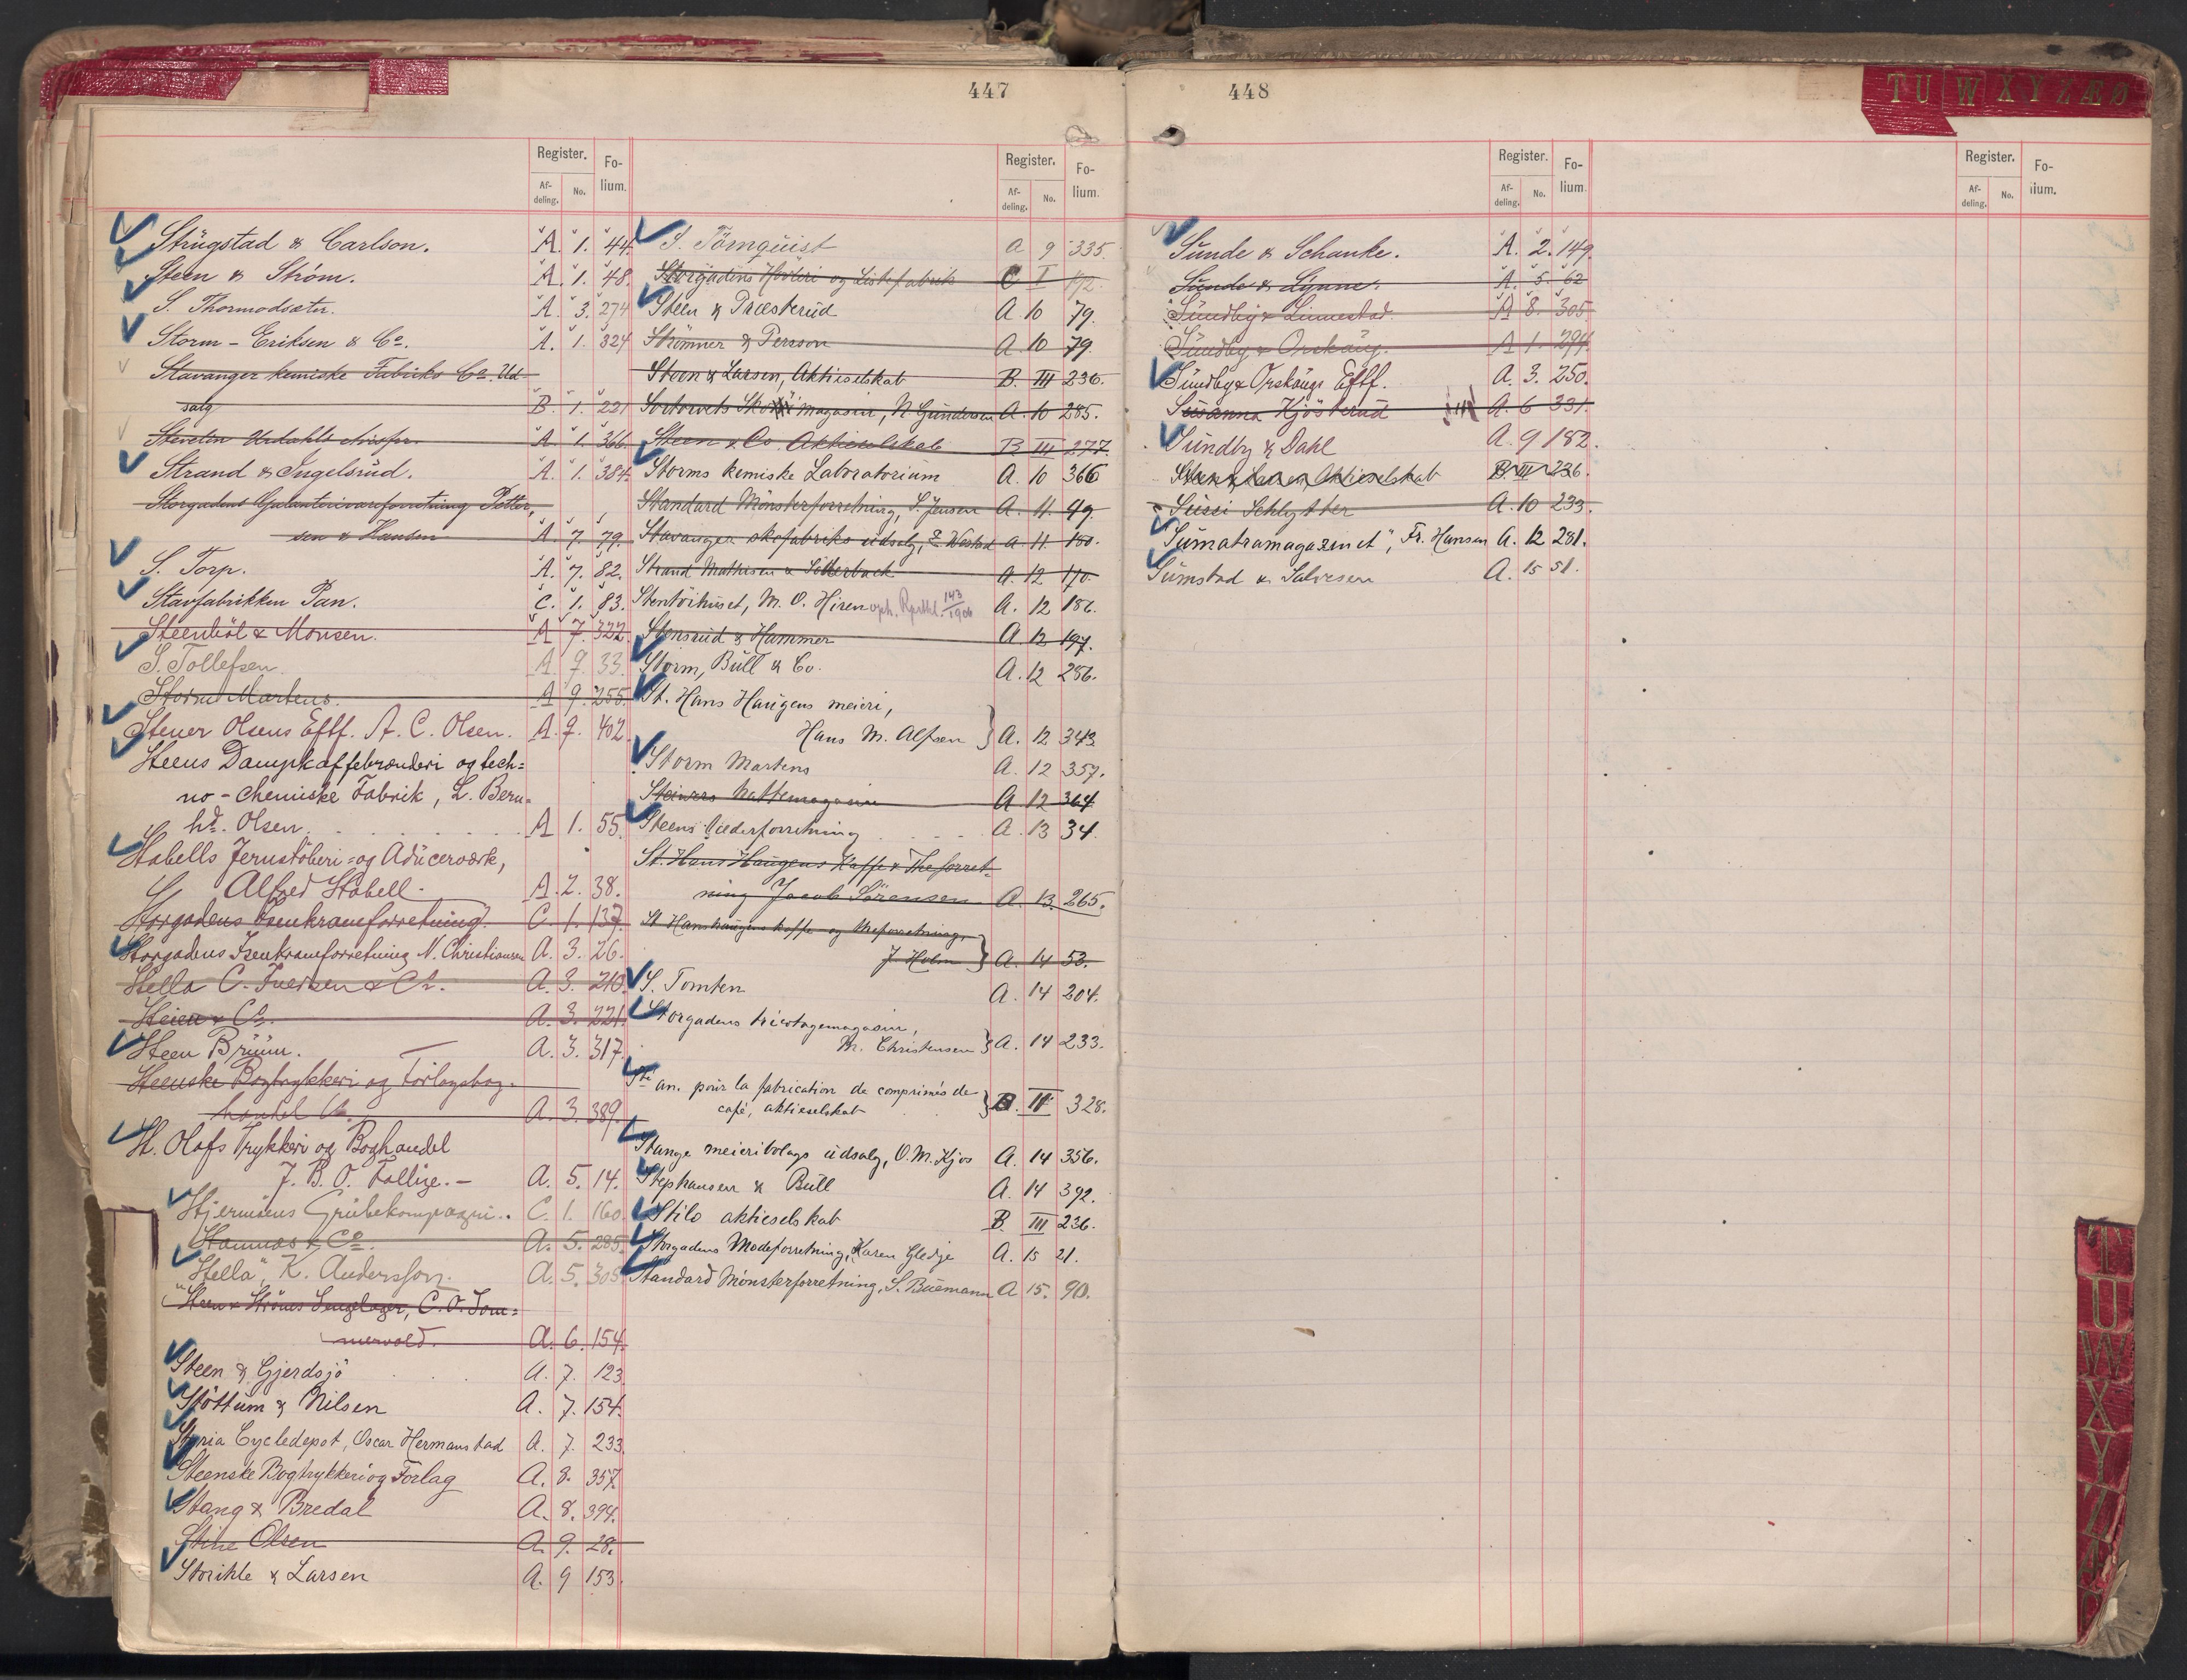 447
Register. Fo-
Af- No. lium.
deling.
Strugstad & Carlson. A. 1. 44.
Steen & Strøm. A. 1. 48.
S. Thormodsæter. A. 3. 274
Storm-Eriksen & Co. A. 1. 324
Stavanger kemiske Fabriks Co. Ud-
salg B. 1. 221
A. 1. 366
Strand & Ingelsrud. A. 1. 384.
Storgadens Galanterivareforretning Petter-
sen & Hansen A. 7. 79.
S. Torp. A. 7. 82.
Stavfabrikken Pan. C. 1. 83.
Steenböl & Monsen. A 7. 322.
S. Tollefsen A 9. 33.
Storm Martens. A 9. 255.
Stener Olsens Eftf. A. C. Olsen. A. 9. 402.
Steens Dampkaffebrænderi og tech-
no-chemiske Fabrik, L. Bern-
hd. Olsen. A 1. 55.
Stabells Jernstøberi- og Aducerværk,
Alfred Stabell. A. 2. 38.
Storgadens Isenkramforretning. C. 1. 137.
Storgadens Isenkramforretning N. Christiansen A. 3. 26.
Stella C. Iversen & Co. A. 3. 210.
Steien & Co. A. 3. 221.
Steen Bruun. A. 3. 317.
Steenske Bogtrykkeri og Forlagsbog-
handel A. 3. 389.
St. Olafs Trykkeri og Boghandel
J. B. O. Follige. A. 5. 14.
Stjernsens Grubekompagni. C. 1. 160.
Stamnæs & Co. A. 5. 285.
"Stella", K. Andersson. A. 5. 305.
Steen & Strøms Sengelager, C. O. Som-
mervold. A. 6. 154.
Steen & Gjerdsjø A. 7. 123.
Støttum & Nilsen A. 7. 154.
Styria Cycledepot, Oscar Hermanstad A. 7. 233.
Steenske Bogtrykkeri og Forlag A. 8. 357.
Stang & Bredal A. 8. 394.
Stine Olsen A. 9. 28.
Storihle & Larsen A. 9 153.
Register. Fo-
Af- No. lium.
deling.
S. Törnquist A 9 335.
Storgadens Høvleri og Listefabrik C I 192.
Steen & Præsterud A. 10 79.
Strömner & Persson A. 10 79.
Steen & Larsen, Aktieselskab B. III 236.
Stortorvets Skomagasin, N Gundersen A. 10 285.
Steen & Co Aktieselskab B III 277.
Storms kemiske Laboratorium A. 10 366
Standard Mønsterforretning, S. Jensen A. 11. 99.
Stavanger skofabriks udsalg, A. 11. 180.
Strand Mathisen & Sötterbach A. 12 170.
Stentöihuset, M. O. Hiren oph. 143/1906 A. 12 186.
Stensrud & Hammer A. 12 197.
Storm, Bull & Co. A. 12 286.
St. Hans Haugens meieri,
Hans M. Alfsen } A. 12 343
Storm Martens A. 12 357.
Steiners Hattemagasin A. 12 364
Steens læderforretning A. 13 34.
St. Hans Haugens Kaffe & Theforret-
ning Jacob Sørensen A. 13. 265.
St Hanshaugens kaffe og theforretning,
J. Holm } A. 14 53.
S. Tomten A. 14 204.
Storgadens tricotagemagasin,
M. Christensen } A. 14 233.
Sté an. pour la fabrication de comprimés de
café, aktieselskab } B. IV 328.
Stange meieribolags udsalg, O. M. Kjos A. 14 356.
Stephansen & Bull A. 14 392.
Stilo aktieselskab B. III 236.
Storgadens Modeforretning, Karen Gledje A. 15 21.
Standard Mønsterforretning, S. Buemann A 15. 90.
448
TU W XYZÆØ
Register. Fo-
Af- No. lium.
deling.
Sunde & Schanke. A. 2. 149.
Sunde & Lynne. A. 5. 62
Sundby & Linnestad. A 8. 305
Sundby & Orskaug. A 1. 294.
Sundby & Orskaugs Eftf. A. 3. 250.
Susanna Kjösterud A. 6 331.
Sundby & Dahl A. 9 182.
Steen & Larsen, Aktieselskab B. III 236.
Sussi Schlytter A. 10 233.
"Sumatramagazinet", Fr. Hansen A. 12 281.
Sumstad & Salvesen A. 15 51.
Register. Fo-
Af- No. lium.
deling.
T
U
W
X
Y
Z
Æ